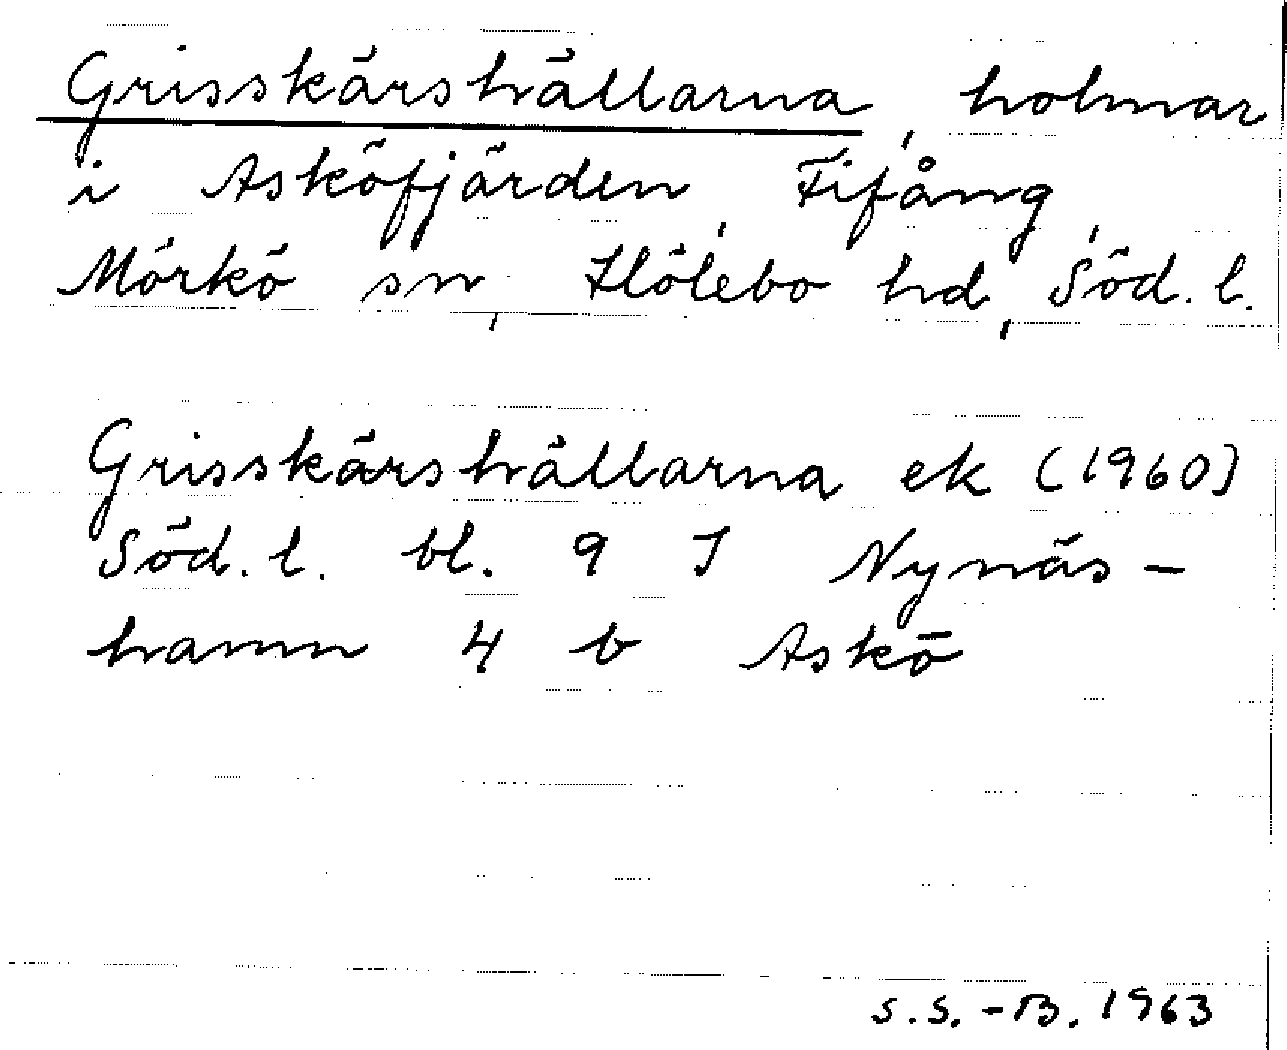 Grisskärshällarna, holmar
i Asköfjärden, Fifång,
Mörkö sn, Hölebo hd, Söd. l.
Grisskärshällarna ek (1960)
Söd. l. bl. 9 I Nynäs-
hamn 4 b Askö
S.S.-B. 1963